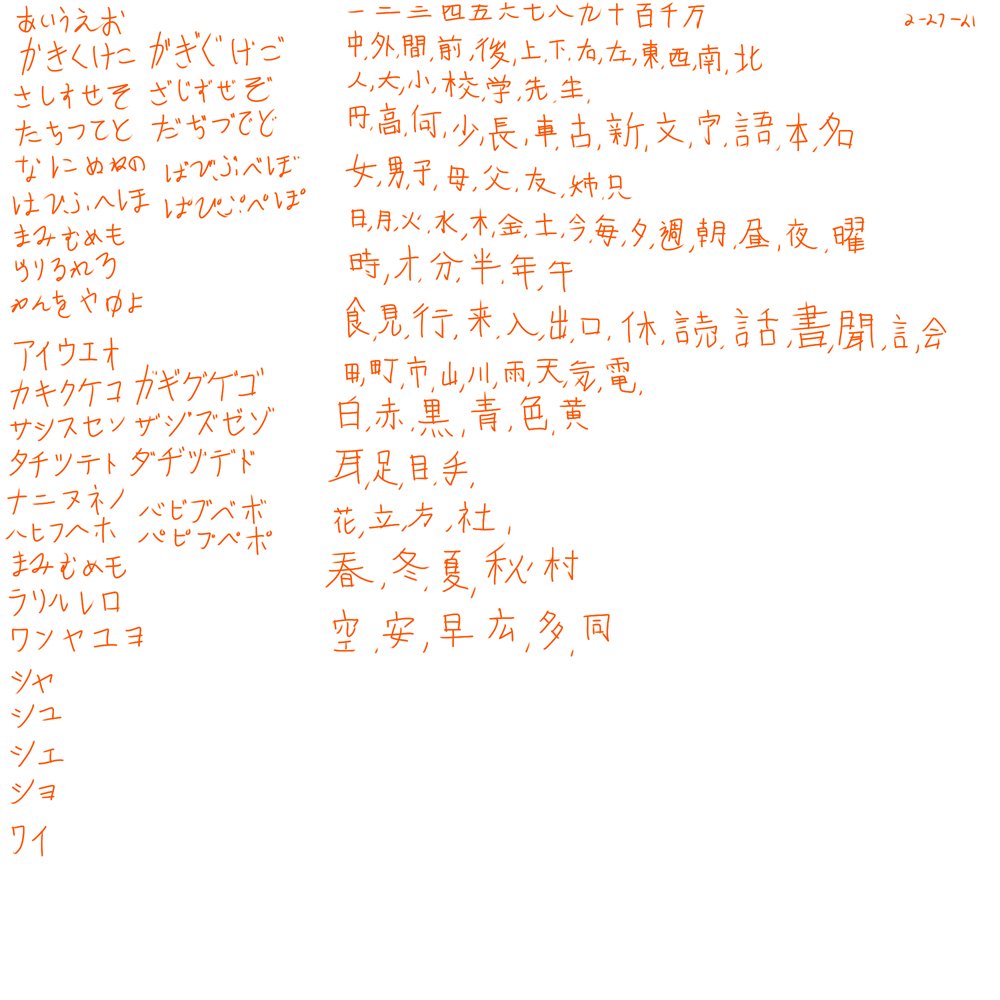 あいうえお
かきくけこ がぎぐげご
さしすせそ ざじずぜぞ
たちつてと だぢづでど
なにぬねの ばびぶべぼ
はひふへほ ぱぴぷぺぽ
まみむめも
らりるれろ
わんを やゆよ
アイウエオ
カキクケコ ガギグゲゴ
サシスセソ ザジズゼゾ
タチツテト ダヂヅデド
ナニヌネノ バビブベボ
ハヒフヘホ パピプペポ
まみむめモ
ラリルレロ
ワンヤユヨ
シャ
シュ
シェ
ショ
ワイ
一二三四五六七八九十百千万
中,外,間,前,後,上,下,右,左,東,西,南,北
人,大,小,校,学,先,生,
円,高,何,少,長,車,古,新,文,字,語,本,名
女,男,子,母,父,友,姉,兄
日,月,火,水,木,金,土,今,毎,夕,週,朝,昼,夜,曜
時,才,分,半,年,午
食,見,行,来,入,出,口,休,読,話,書,聞,言,会
田,町,市,山,川,雨,天,気,電,
白,赤,黒,青,色,黄
耳,足,目,手,
花,立,方,社,
春,冬,夏,秋,村
空,安,早,広,多,同
2-27-21